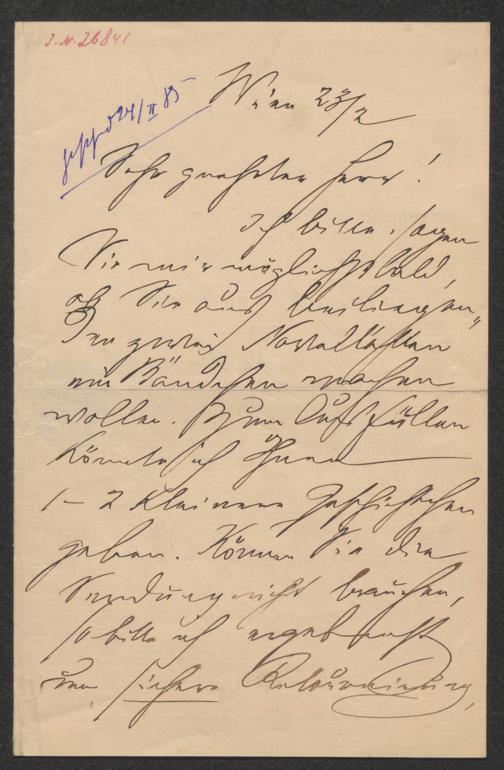 J.N. 26841
24/II 85
Wien 23/2
Sehr geehrter Herr!
Ich bitte, sagen
Sie mir möglichst bald,
ob Sie aus beiliegen„
den zwei Novelletten
ein Bändchen machen
wollen. Zum Ausfüllen
könnte ich Ihnen
1–2 kleinere Geschichten
geben. Können Sie die
Sendung nicht brauchen,
so bitte ich ergebenst
um sichere Retournirung,